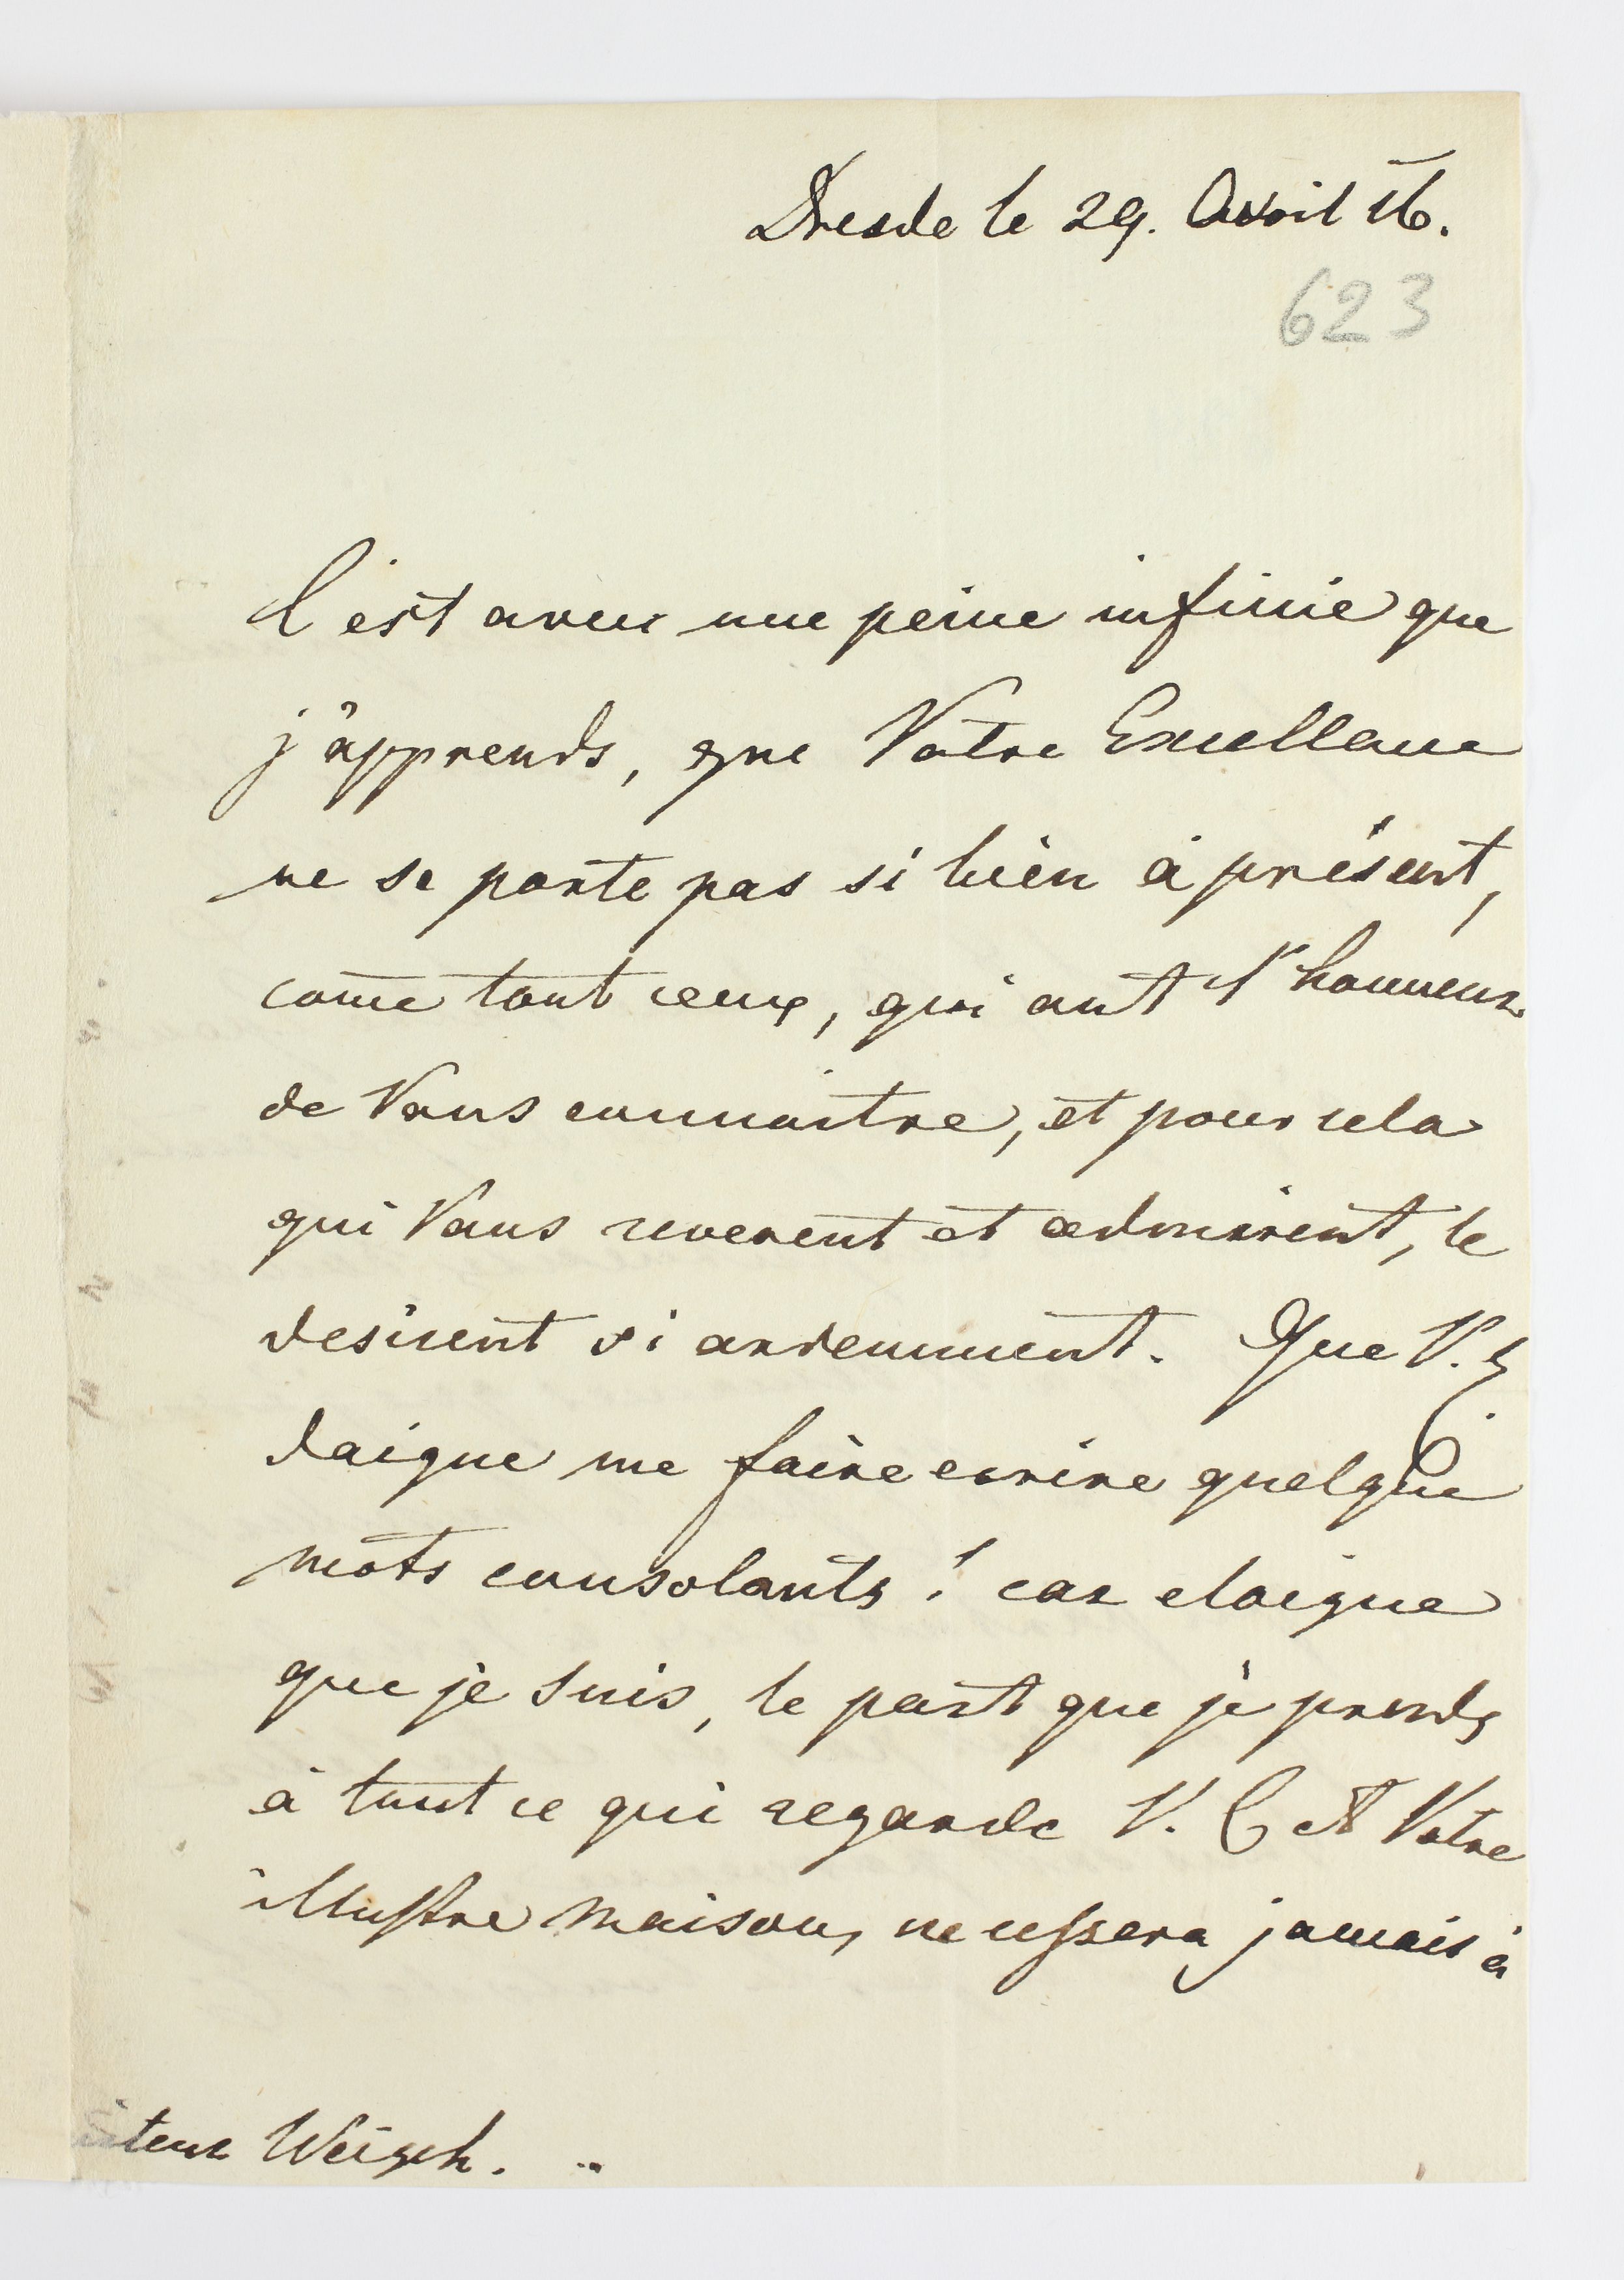 Dresde le 29. Avril 56.
623
C'est avec une peine infinie que
j'apprends, que Votre Excellence
ne se porte pas si bien à présent,
com̅e tout ceux, qui ont l'honneur
de Vous connaitre, et pour cela
qui Vous reverent et admirent, le
desirent si ardemment. Que V. E.
daigne me faire ecrire quelque
mots consolants! car eloigne
que je suis, le part que je prends
à tout ce qui regarde V. E et Votre
illustre maison, ne cessera jamais à
teur Weigel.